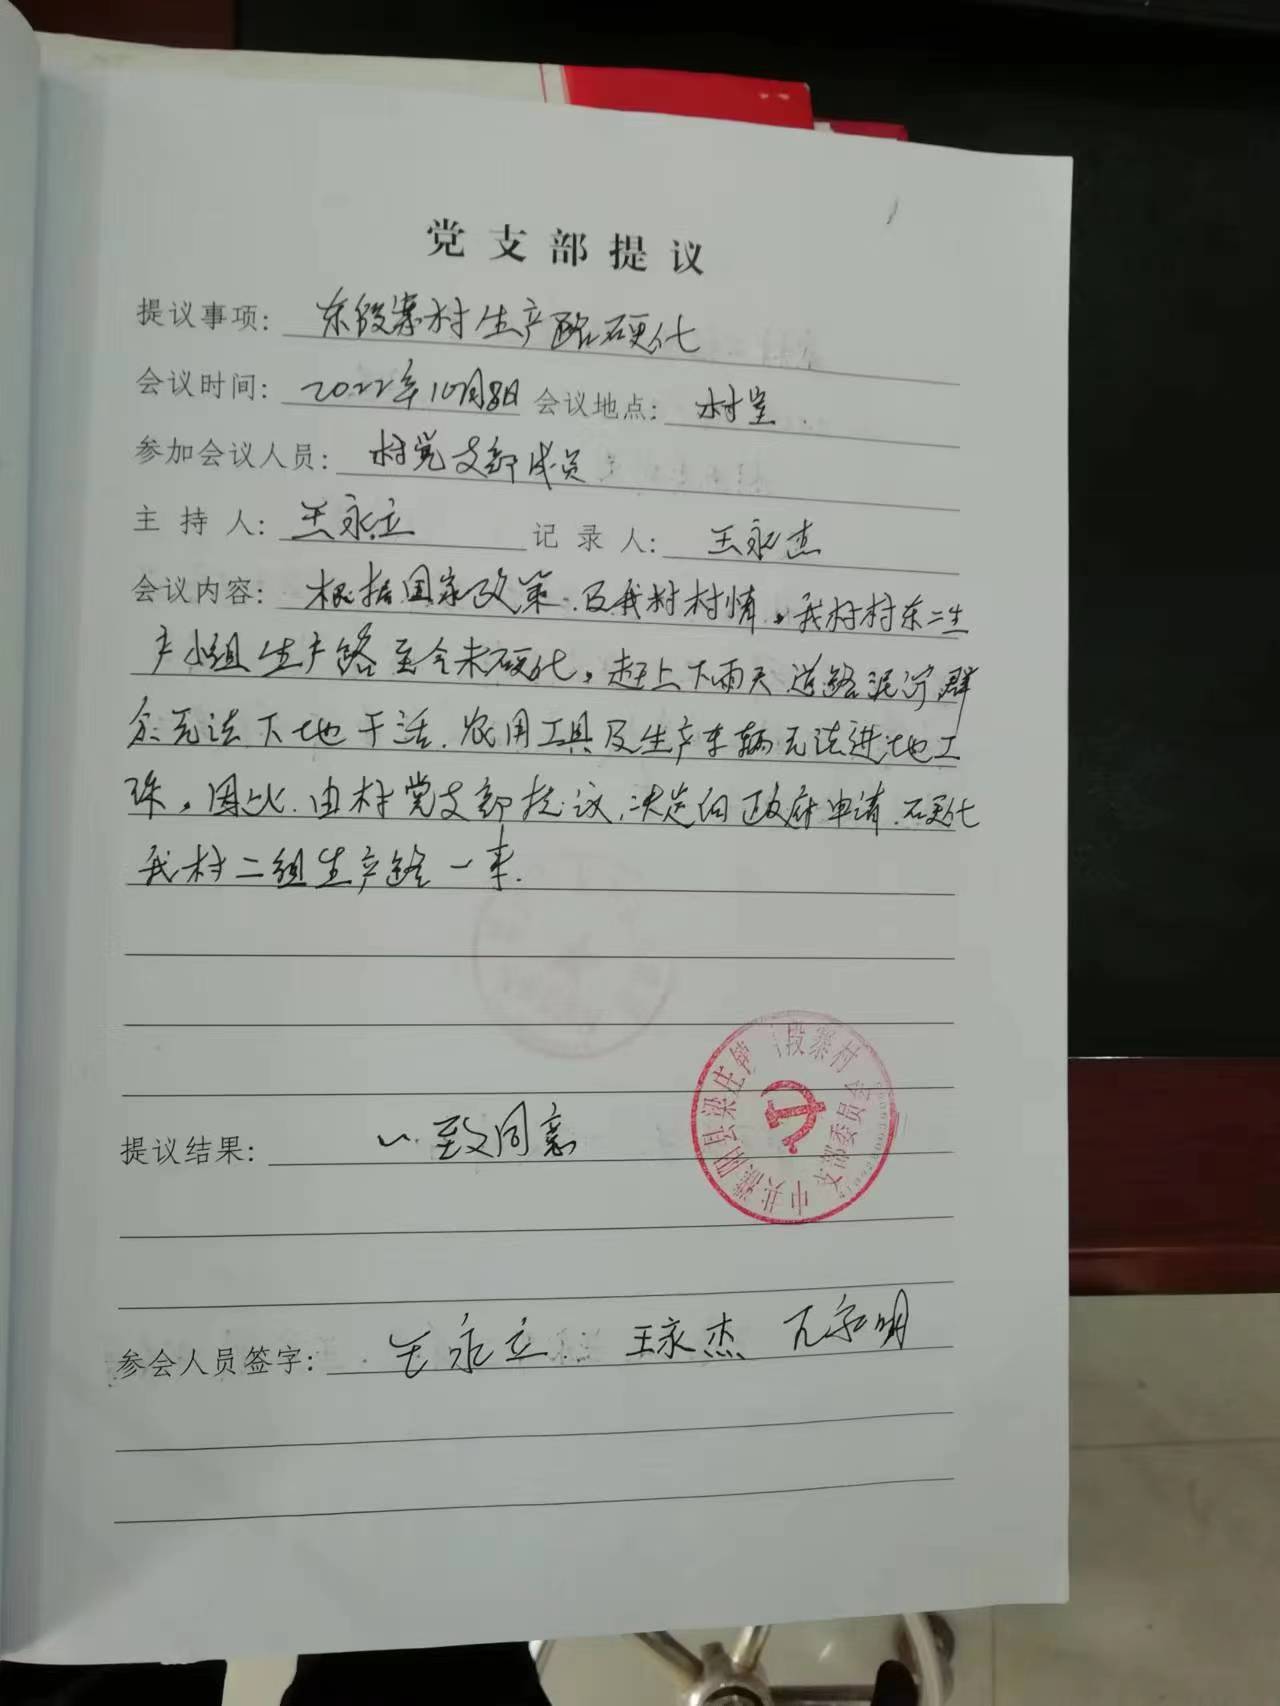 党支部提议
提议事项：东段寨村生产路硬化
会议时间：2022年10月8日 会议地点：村室
参加会议人员：村党支部成员
主持人：王永立 记录人：王永杰
会议内容：根据国家政策及我村村情，我村村东二生
产小组生产路至今未硬化，赶上下雨天道路泥泞群
众无法下地干活，农用工具及生产车辆无法进地工
作，因此，由村党支部提议，决定向政府申请，硬化
我村二组生产路一事.
提议结果：一致同意
中共濮阳县梁庄镇 段寨村
支部委员会
参会人员签字：王永立 王永杰